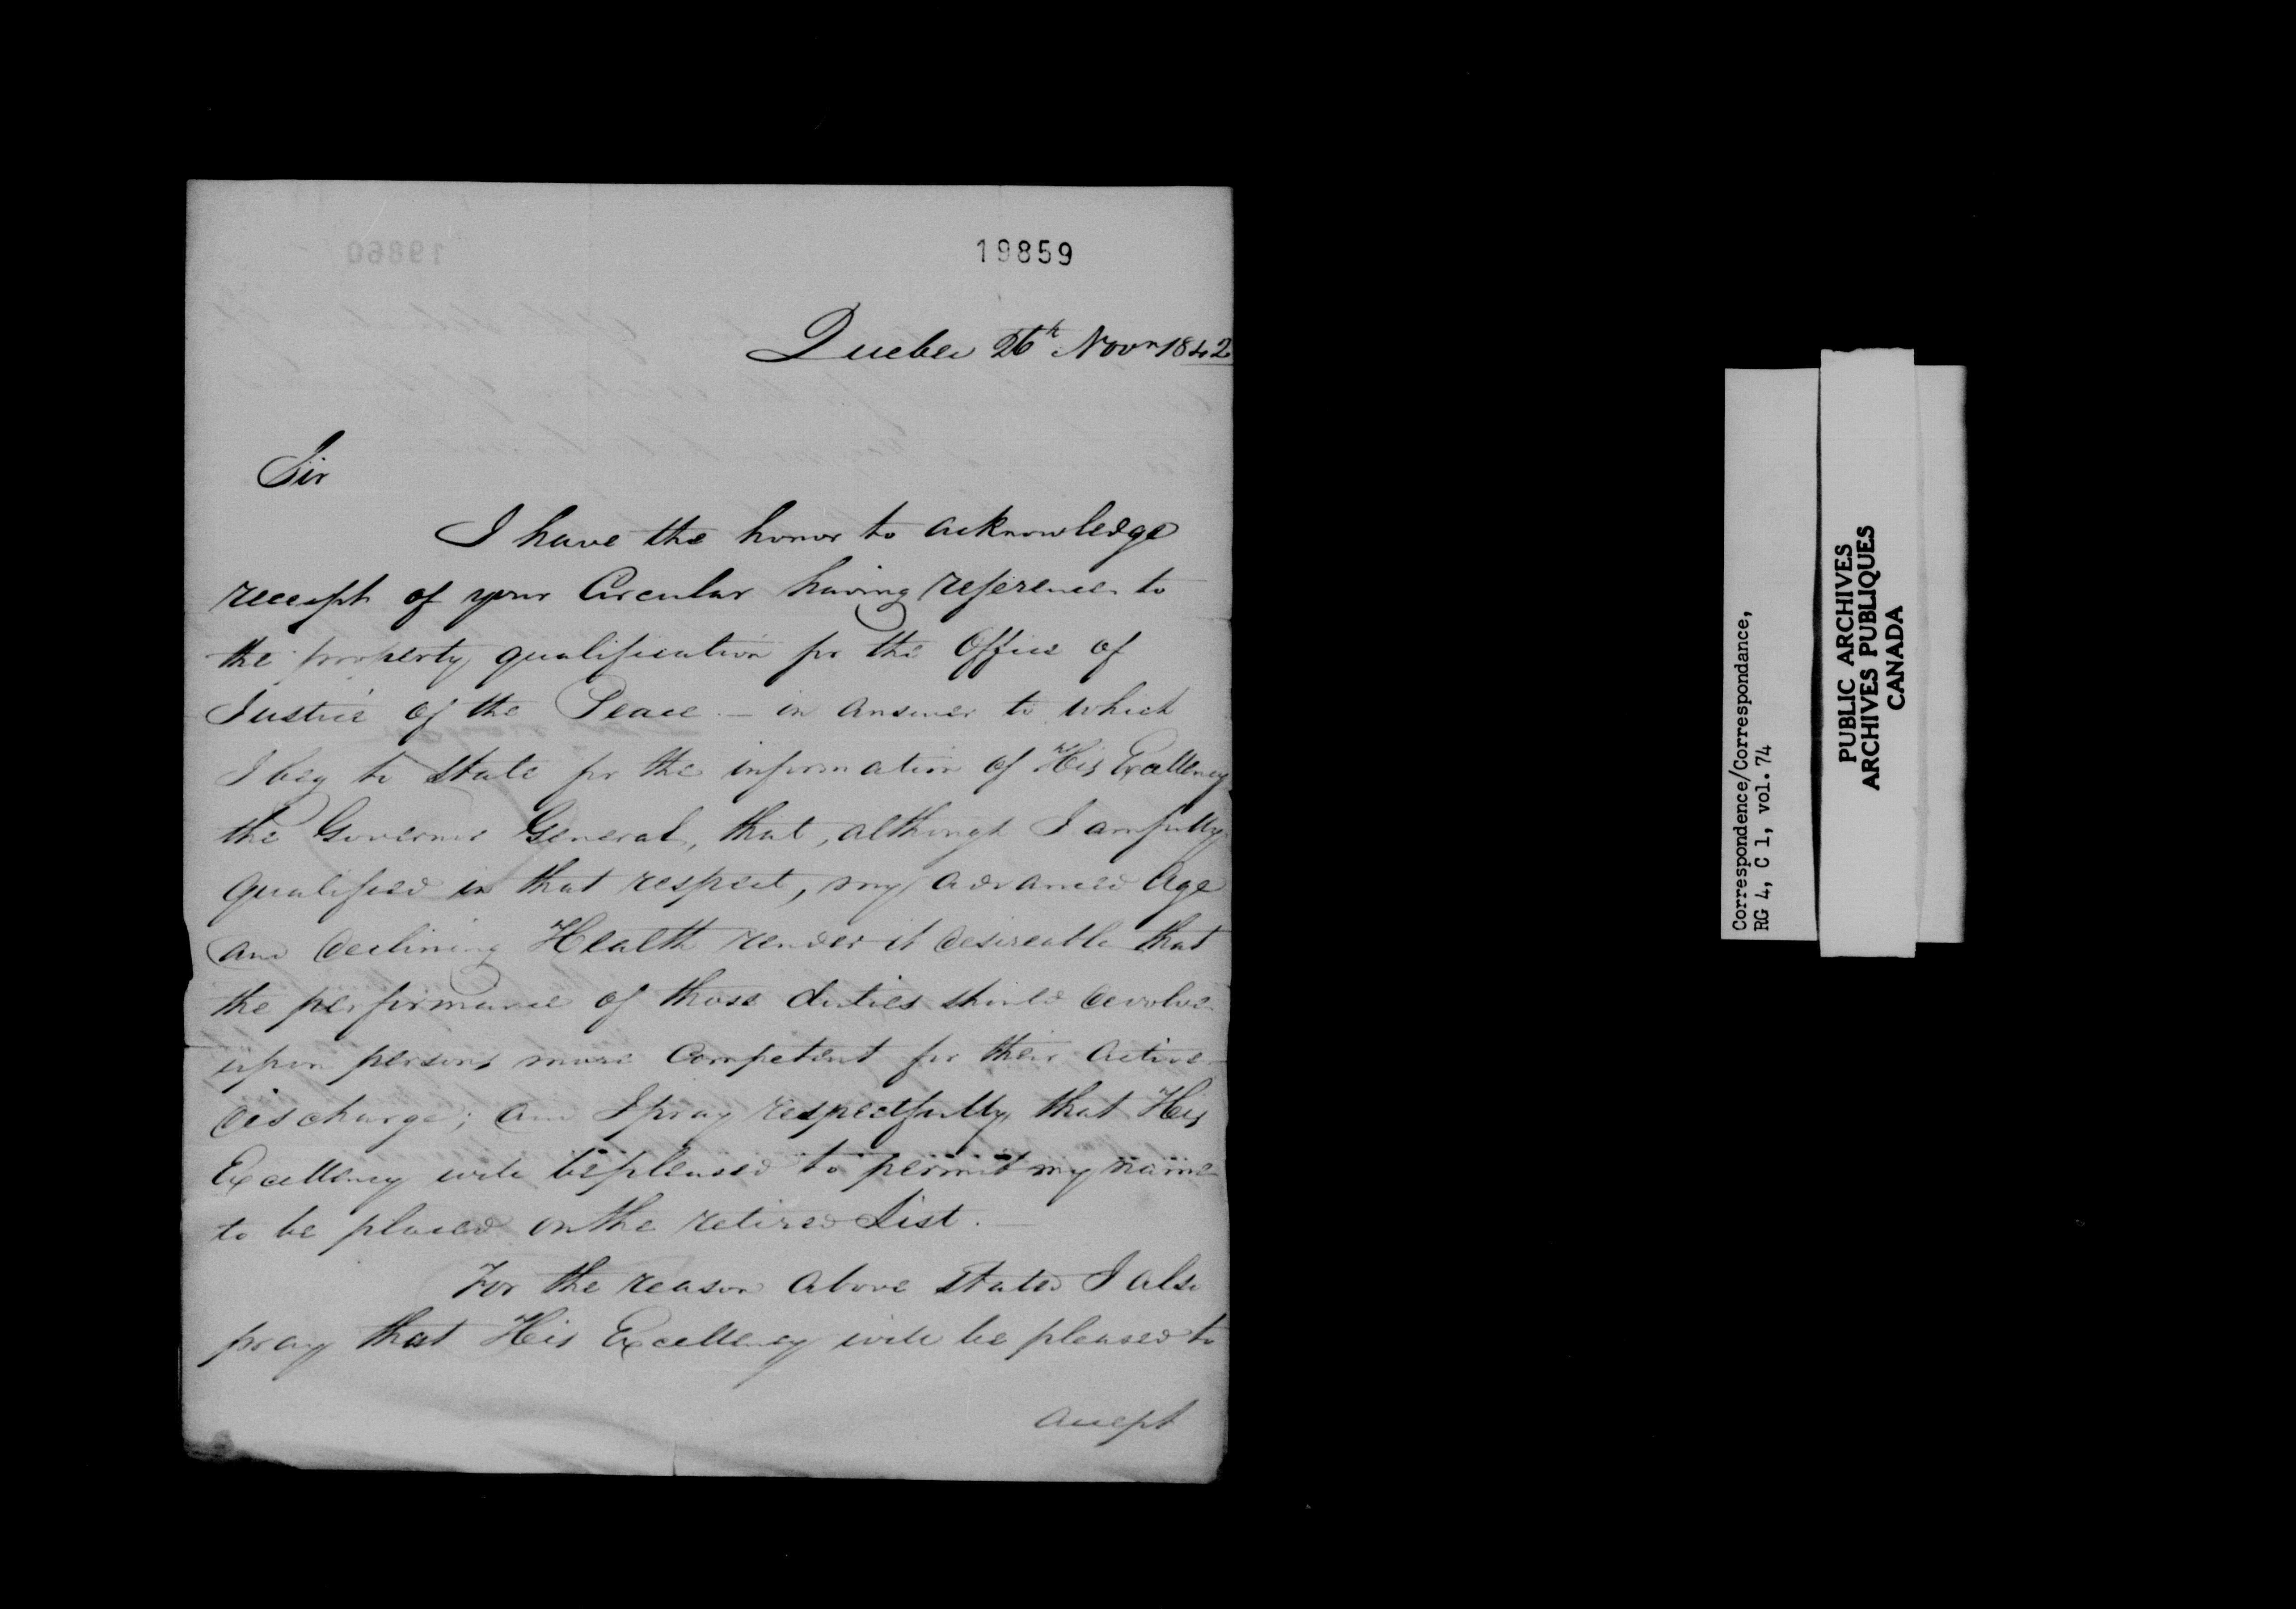 19859
19860
Quebec 26th Novr 1842
Sir
I have the honor to acknowledge
receipt of your Circular having reference to
the property qualification for the Office of
Justice of the Peace — in answer to which
I beg to state for the information of His Excellency
the Governor General, that, although I am fully
qualified in that respect, my advanced Age
and declining Health render it desireable that
the performance of those duties should devolve
upon persons more Competent for their Active
discharge; and I pray respectfully, that His
Excellency will be pleased to permit my name
to be placed on the retired List. —
For the reason above stated I also
pray that His Excellency will be pleased to
accept
Correspondence/Correspondance,
RG 4, C 1, vol. 74
PUBLIC ARCHIVES
ARCHIVES PUBLIQUES
CANADA